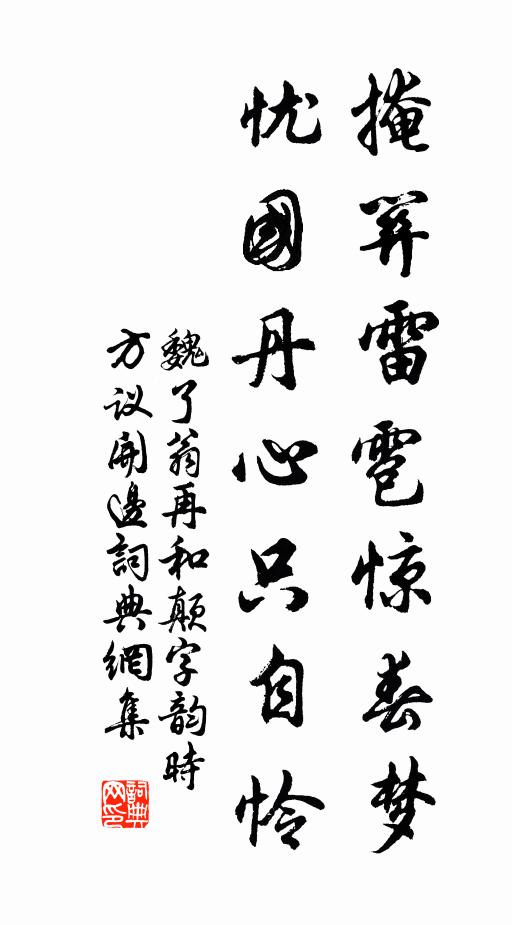 掩筭雷雹惊春梦
忧國丹心只自怜
魏了翁再和颠字韵時
方议開邊詞典網集
詞典
网印